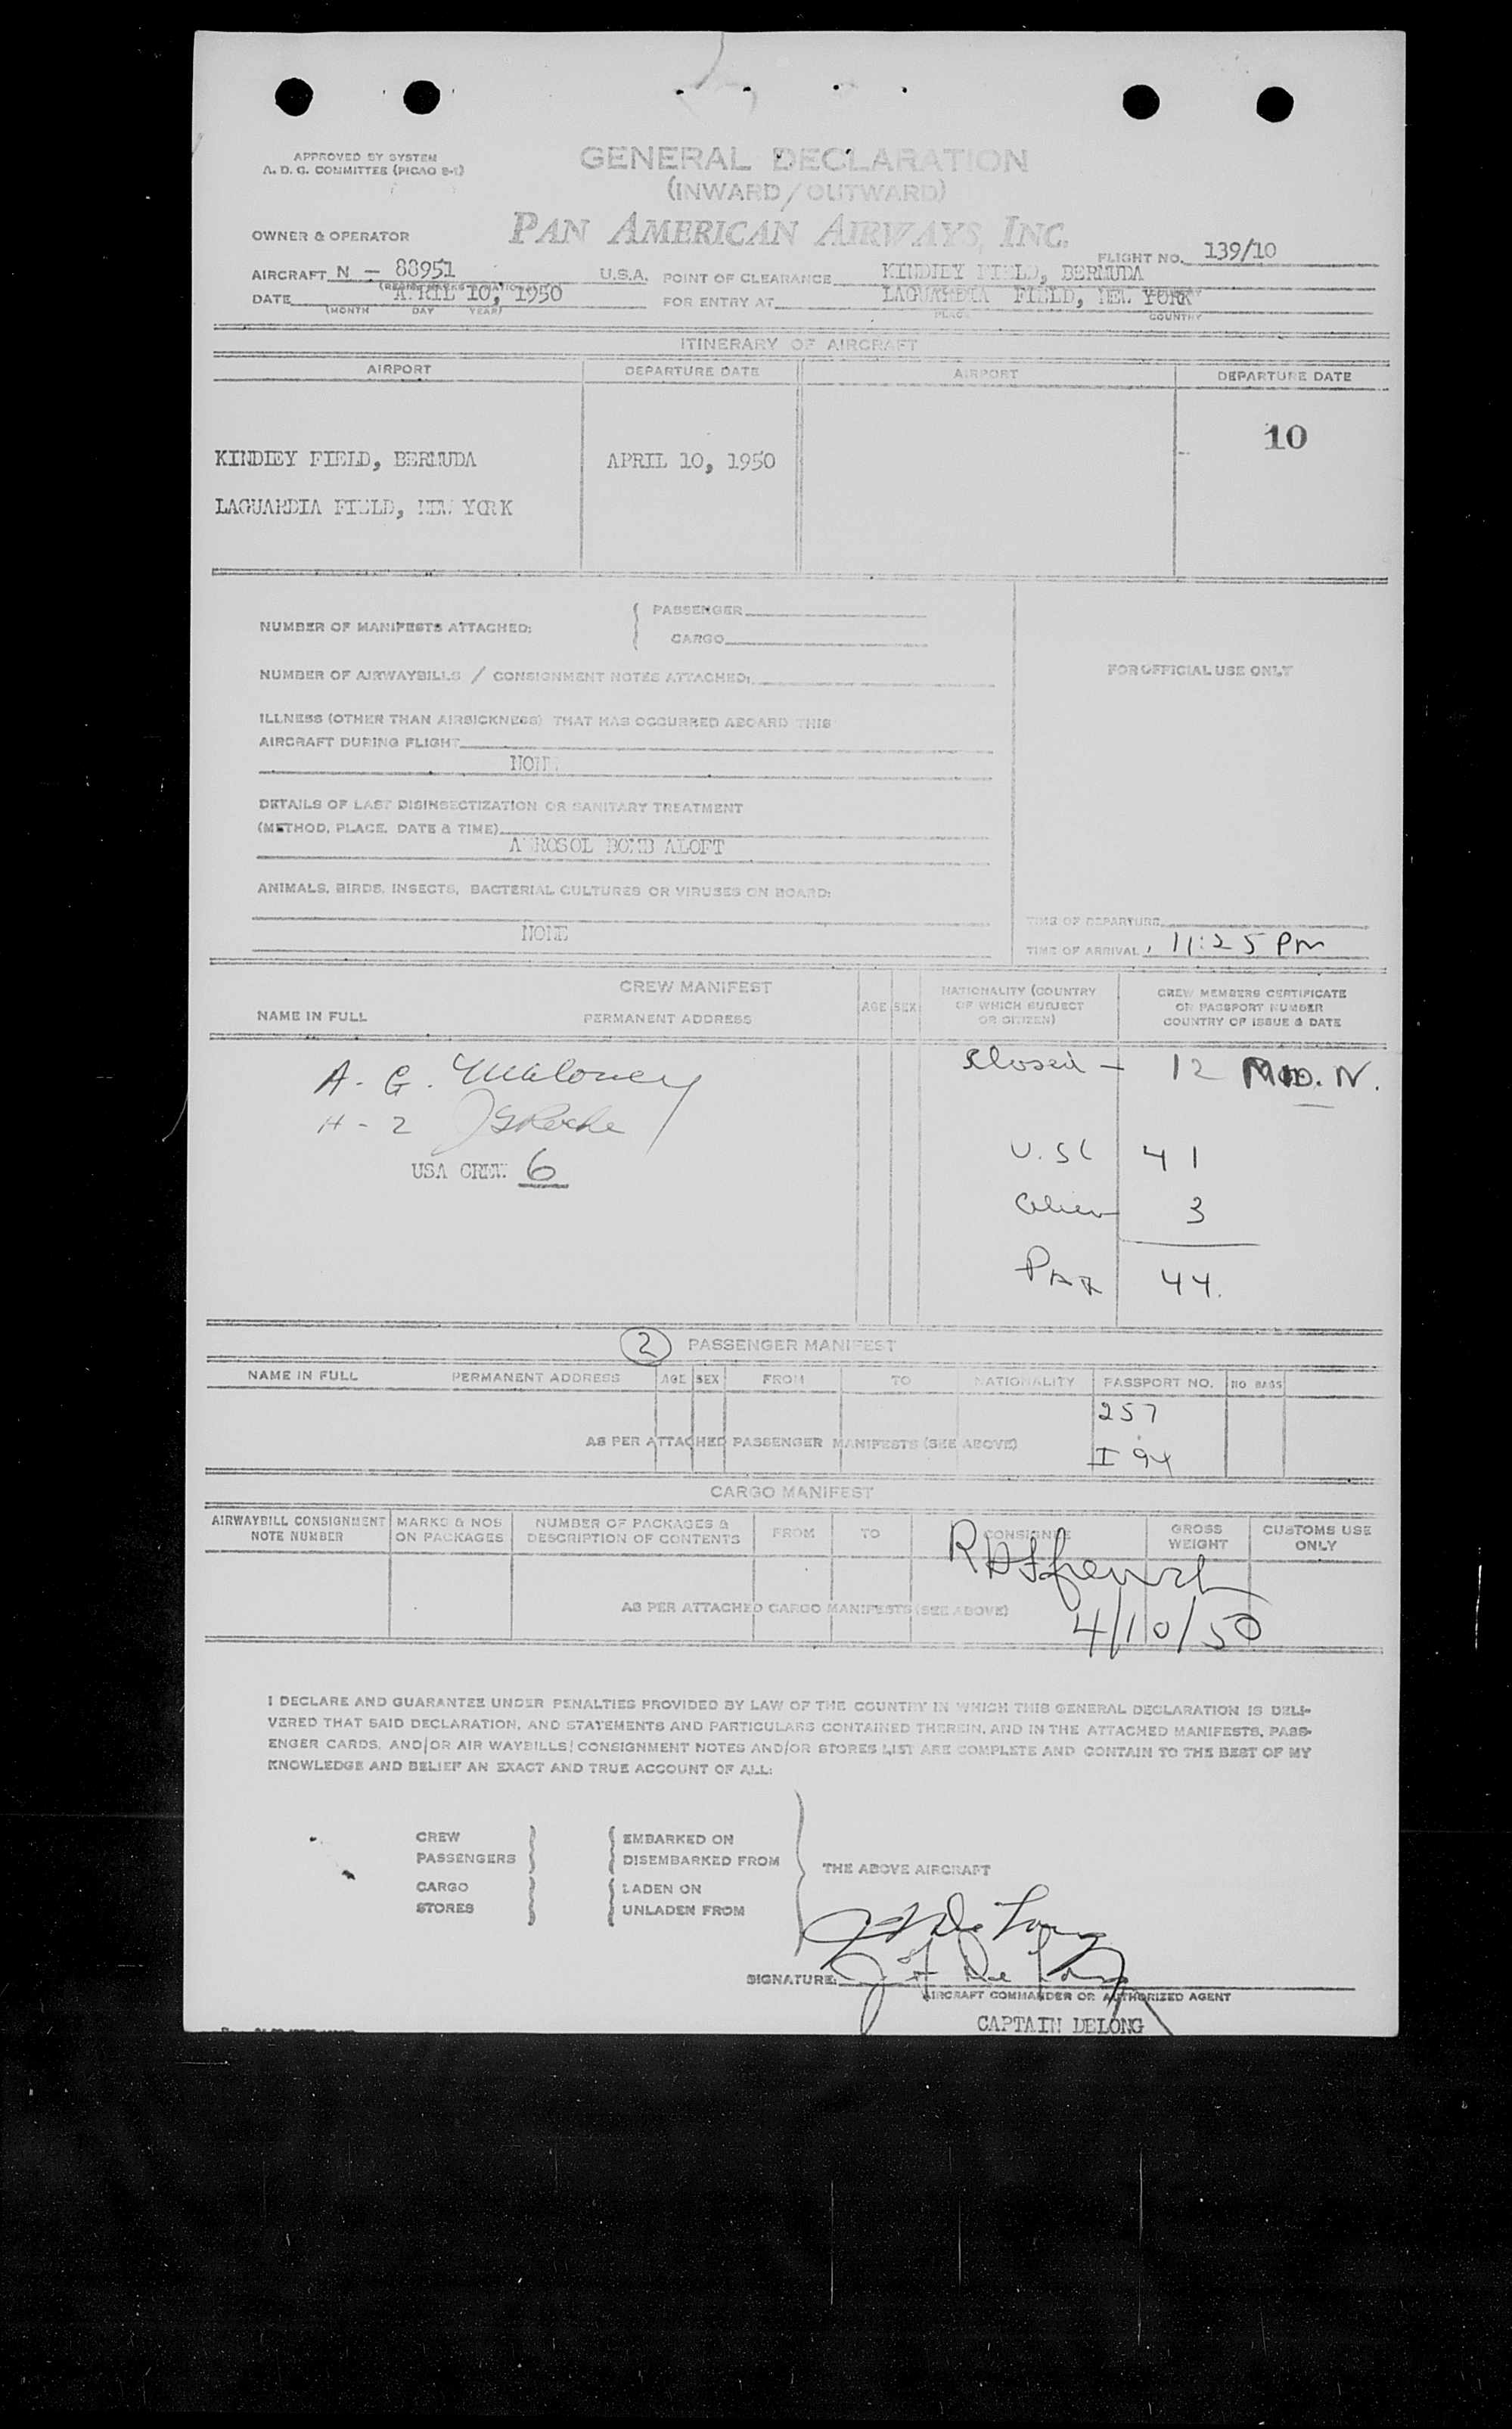 APPROVED BY SYSTEM
A. D. C. COMMITTEE (PICAO 8-1)
GENERAL DECLARATION
(INWARD / OUTWARD)
PAN AMERICAN AIRWAYS, INC.
OWNER & OPERATOR
FLIGHT NO. 139/10
AIRCRAFT N - 88951 U.S.A. POINT OF CLEARANCE KINDLEY FIELD, BERMUDA
DATE APRIL 10, 1950 FOR ENTRY AT LAGUARDIA FIELD, NEW YORK
(MONTH DAY YEAR) PLACE COUNTRY
ITINERARY OF AIRCRAFT
AIRPORT DEPARTURE DATE AIRPORT DEPARTURE DATE
10
KINDLEY FIELD, BERMUDA APRIL 10, 1950
LAGUARDIA FIELD, NEW YORK
NUMBER OF MANIFESTS ATTACHED: { PASSENGER
CARGO
NUMBER OF AIRWAYBILLS / CONSIGNMENT NOTES ATTACHED:
FOR OFFICIAL USE ONLY
ILLNESS (OTHER THAN AIRSICKNESS) THAT HAS OCCURRED ABOARD THIS
AIRCRAFT DURING FLIGHT
NONE
DETAILS OF LAST DISINSECTIZATION OR SANITARY TREATMENT
(METHOD, PLACE, DATE & TIME)
AEROSOL BOMB ALOFT
ANIMALS, BIRDS, INSECTS, BACTERIAL CULTURES OR VIRUSES ON BOARD:
NONE
TIME OF DEPARTURE
TIME OF ARRIVAL 11:25 PM
CREW MANIFEST
NAME IN FULL PERMANENT ADDRESS AGE SEX NATIONALITY (COUNTRY OF WHICH SUBJECT OR CITIZEN) CREW MEMBERS CERTIFICATE OR PASSPORT NUMBER COUNTRY OF ISSUE & DATE
A. G. Maloney
Closed - 12 MID. N.
H - 2 JGRoche
USA CREW 6
U.SC 41
Alien 3
PAX 44.
2 PASSENGER MANIFEST
NAME IN FULL PERMANENT ADDRESS AGE SEX FROM TO NATIONALITY PASSPORT NO. NO BAGS
257
AS PER ATTACHED PASSENGER MANIFESTS (SEE ABOVE)
I 94
CARGO MANIFEST
AIRWAYBILL CONSIGNMENT NOTE NUMBER MARKS & NOS ON PACKAGES NUMBER OF PACKAGES & DESCRIPTION OF CONTENTS FROM TO CONSIGNEE GROSS WEIGHT CUSTOMS USE ONLY
AS PER ATTACHED CARGO MANIFESTS (SEE ABOVE)
4/10/50
I DECLARE AND GUARANTEE UNDER PENALTIES PROVIDED BY LAW OF THE COUNTRY IN WHICH THIS GENERAL DECLARATION IS DELI-
VERED THAT SAID DECLARATION, AND STATEMENTS AND PARTICULARS CONTAINED THEREIN, AND IN THE ATTACHED MANIFESTS, PASS-
ENGER CARDS, AND/OR AIR WAYBILLS/CONSIGNMENT NOTES AND/OR STORES LIST ARE COMPLETE AND CONTAIN TO THE BEST OF MY
KNOWLEDGE AND BELIEF AN EXACT AND TRUE ACCOUNT OF ALL:
CREW EMBARKED ON
PASSENGERS DISEMBARKED FROM
THE ABOVE AIRCRAFT
CARGO LADEN ON
STORES UNLADEN FROM
SIGNATURE:
AIRCRAFT COMMANDER OR AUTHORIZED AGENT
CAPTAIN DELONG